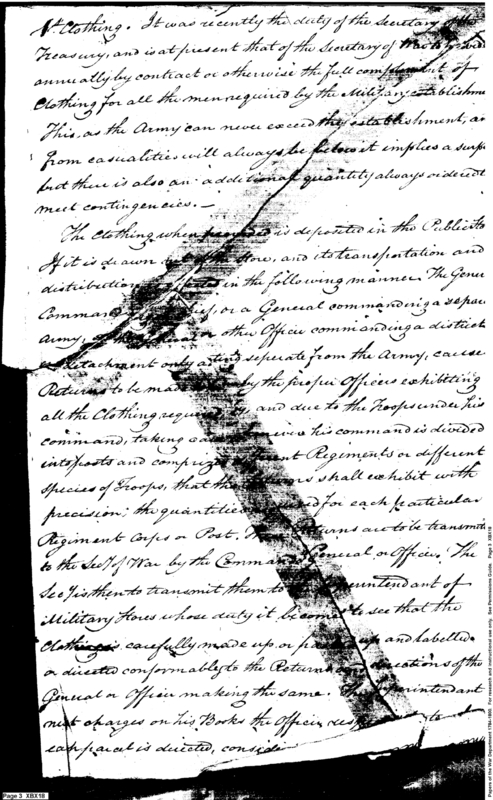 Clothing. It was recently the duty of the Secretary of the
Treasury, and is at present that of the Secretary of War to
annually by contract or otherwise the full compliment of
Clothing for all the men required by the Military establishme
This, as the Army can never exceed the establishment, an
from casualities will always be below it implies a surp
but there is also an additional quantity always ordered t
meet contingencies.—
The Clothing when is deposited in the Public Sto
If it is drawn Store, and its transportation and
distribution in the following manner. The Gener
Command or a General commanding a separ
army, or other Officer commanding a district
or detachment only acting seperate from the Army, cause
Returns to be made by the proper Officers exhibiting
all the Clothing required by, and due to the Troops under his
command, taking care where his command is divided
into posts and comprizes different Regiments or different
species of Troops, that the shall exhibit with
precision; the quantities for each particular
Regiment Corps or Post. Returns are to be transm
to the Secy of War by the Command General or Officer. The
Secy is then to transmit them to erintendant of
Military Stores whose duty it becomes to see that the
Clothing is carefully made up or packed up and labelled
or directed conformably to the Returns and directions of the
General or Officer making the same. The Superintendant
next charges on his Books the Officer to
each parcel is directed, conside
Page 3 XBX18
Papers of the War Department 1784-1800. For research and instructional use only. See Permissions Guide. Page 3 XBX18